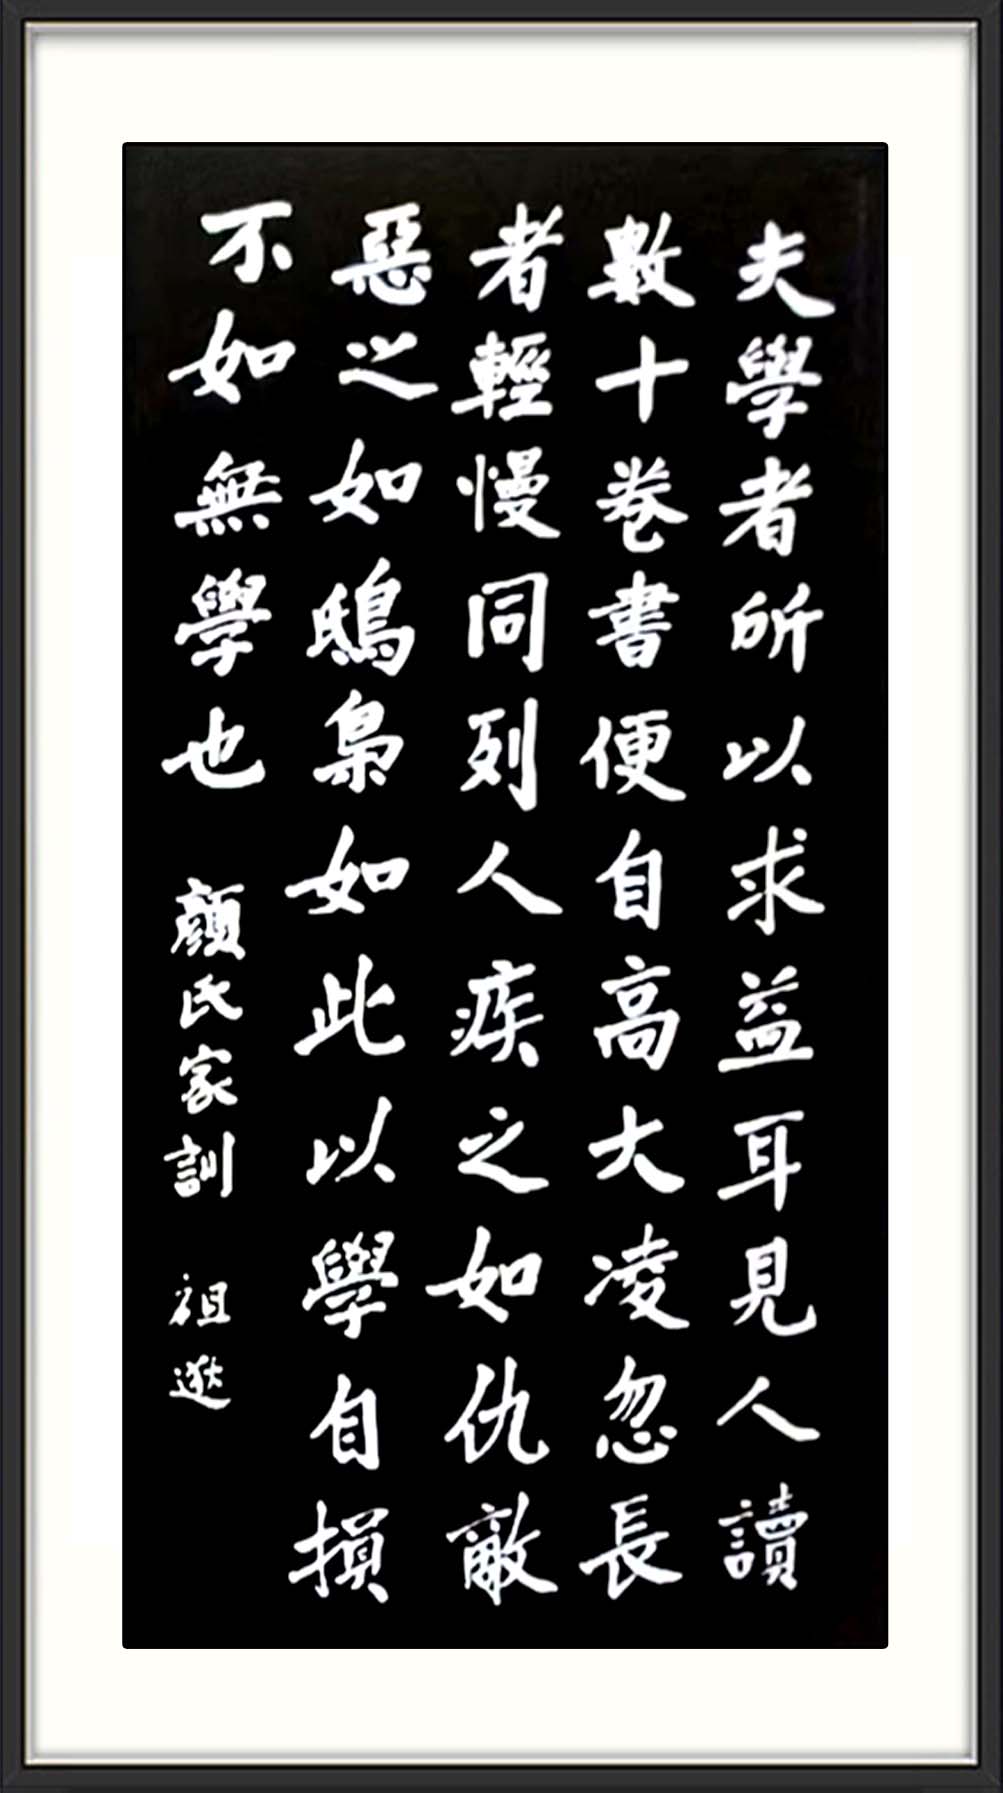 夫學者所以求益耳見人讀
數十卷書便自高大凌忽長
者輕慢同列人疾之如仇敵
惡之如鴟梟如此以學自損
不如無學也
顏氏家訓
祖逖